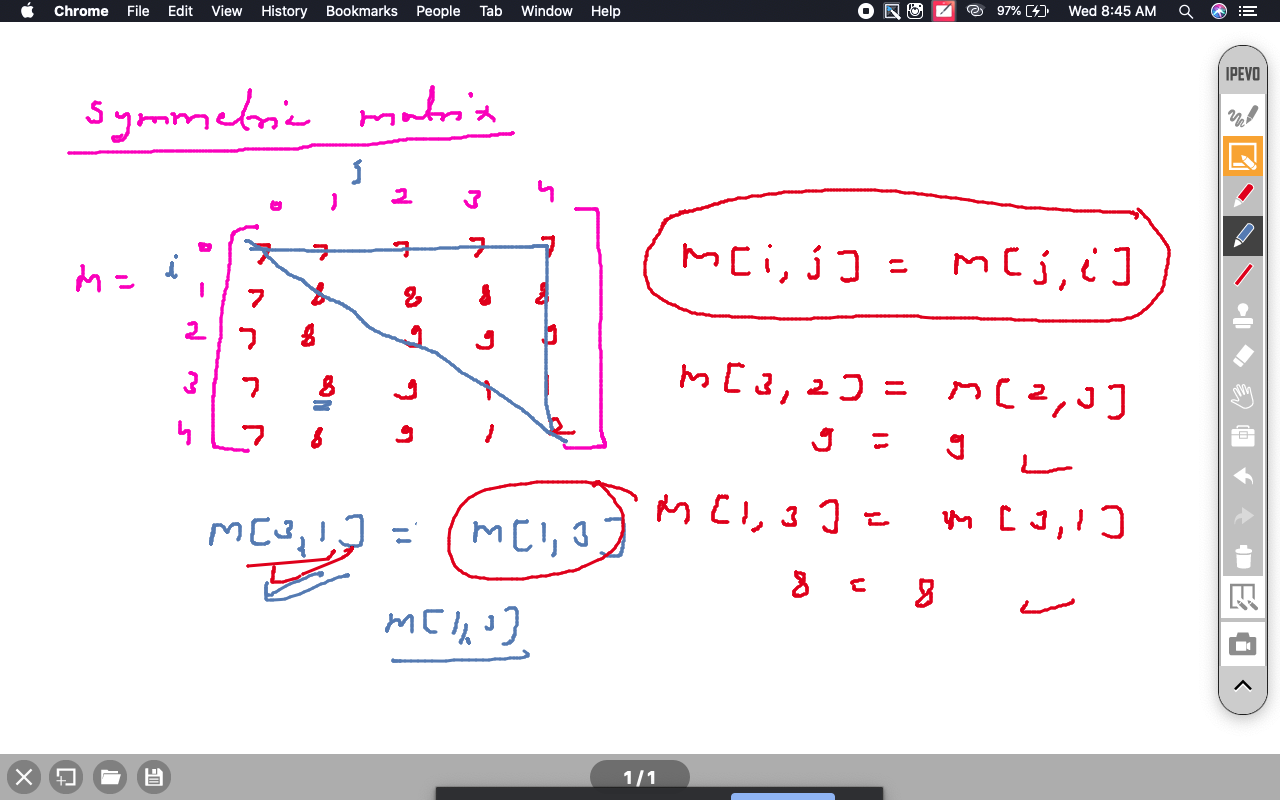 Chrome File Edit View History Bookmarks People Tab Window Help 97% Wed 8:45 AM
IPEVO
Symmetric matrix
j
0 1 2 3 4
M = i
0 7 7 7 7 7
1 7 8 8 8 8
2 7 8 9 9 9
3 7 8 9 1 1
4 7 8 9 1 2
M[i,j] = M[j,i]
M[3,2] = M[2,3]
9 = 9
M[1,3] = M[3,1]
8 = 8
M[3,1] = M[1,3]
M[1,3]
1/1